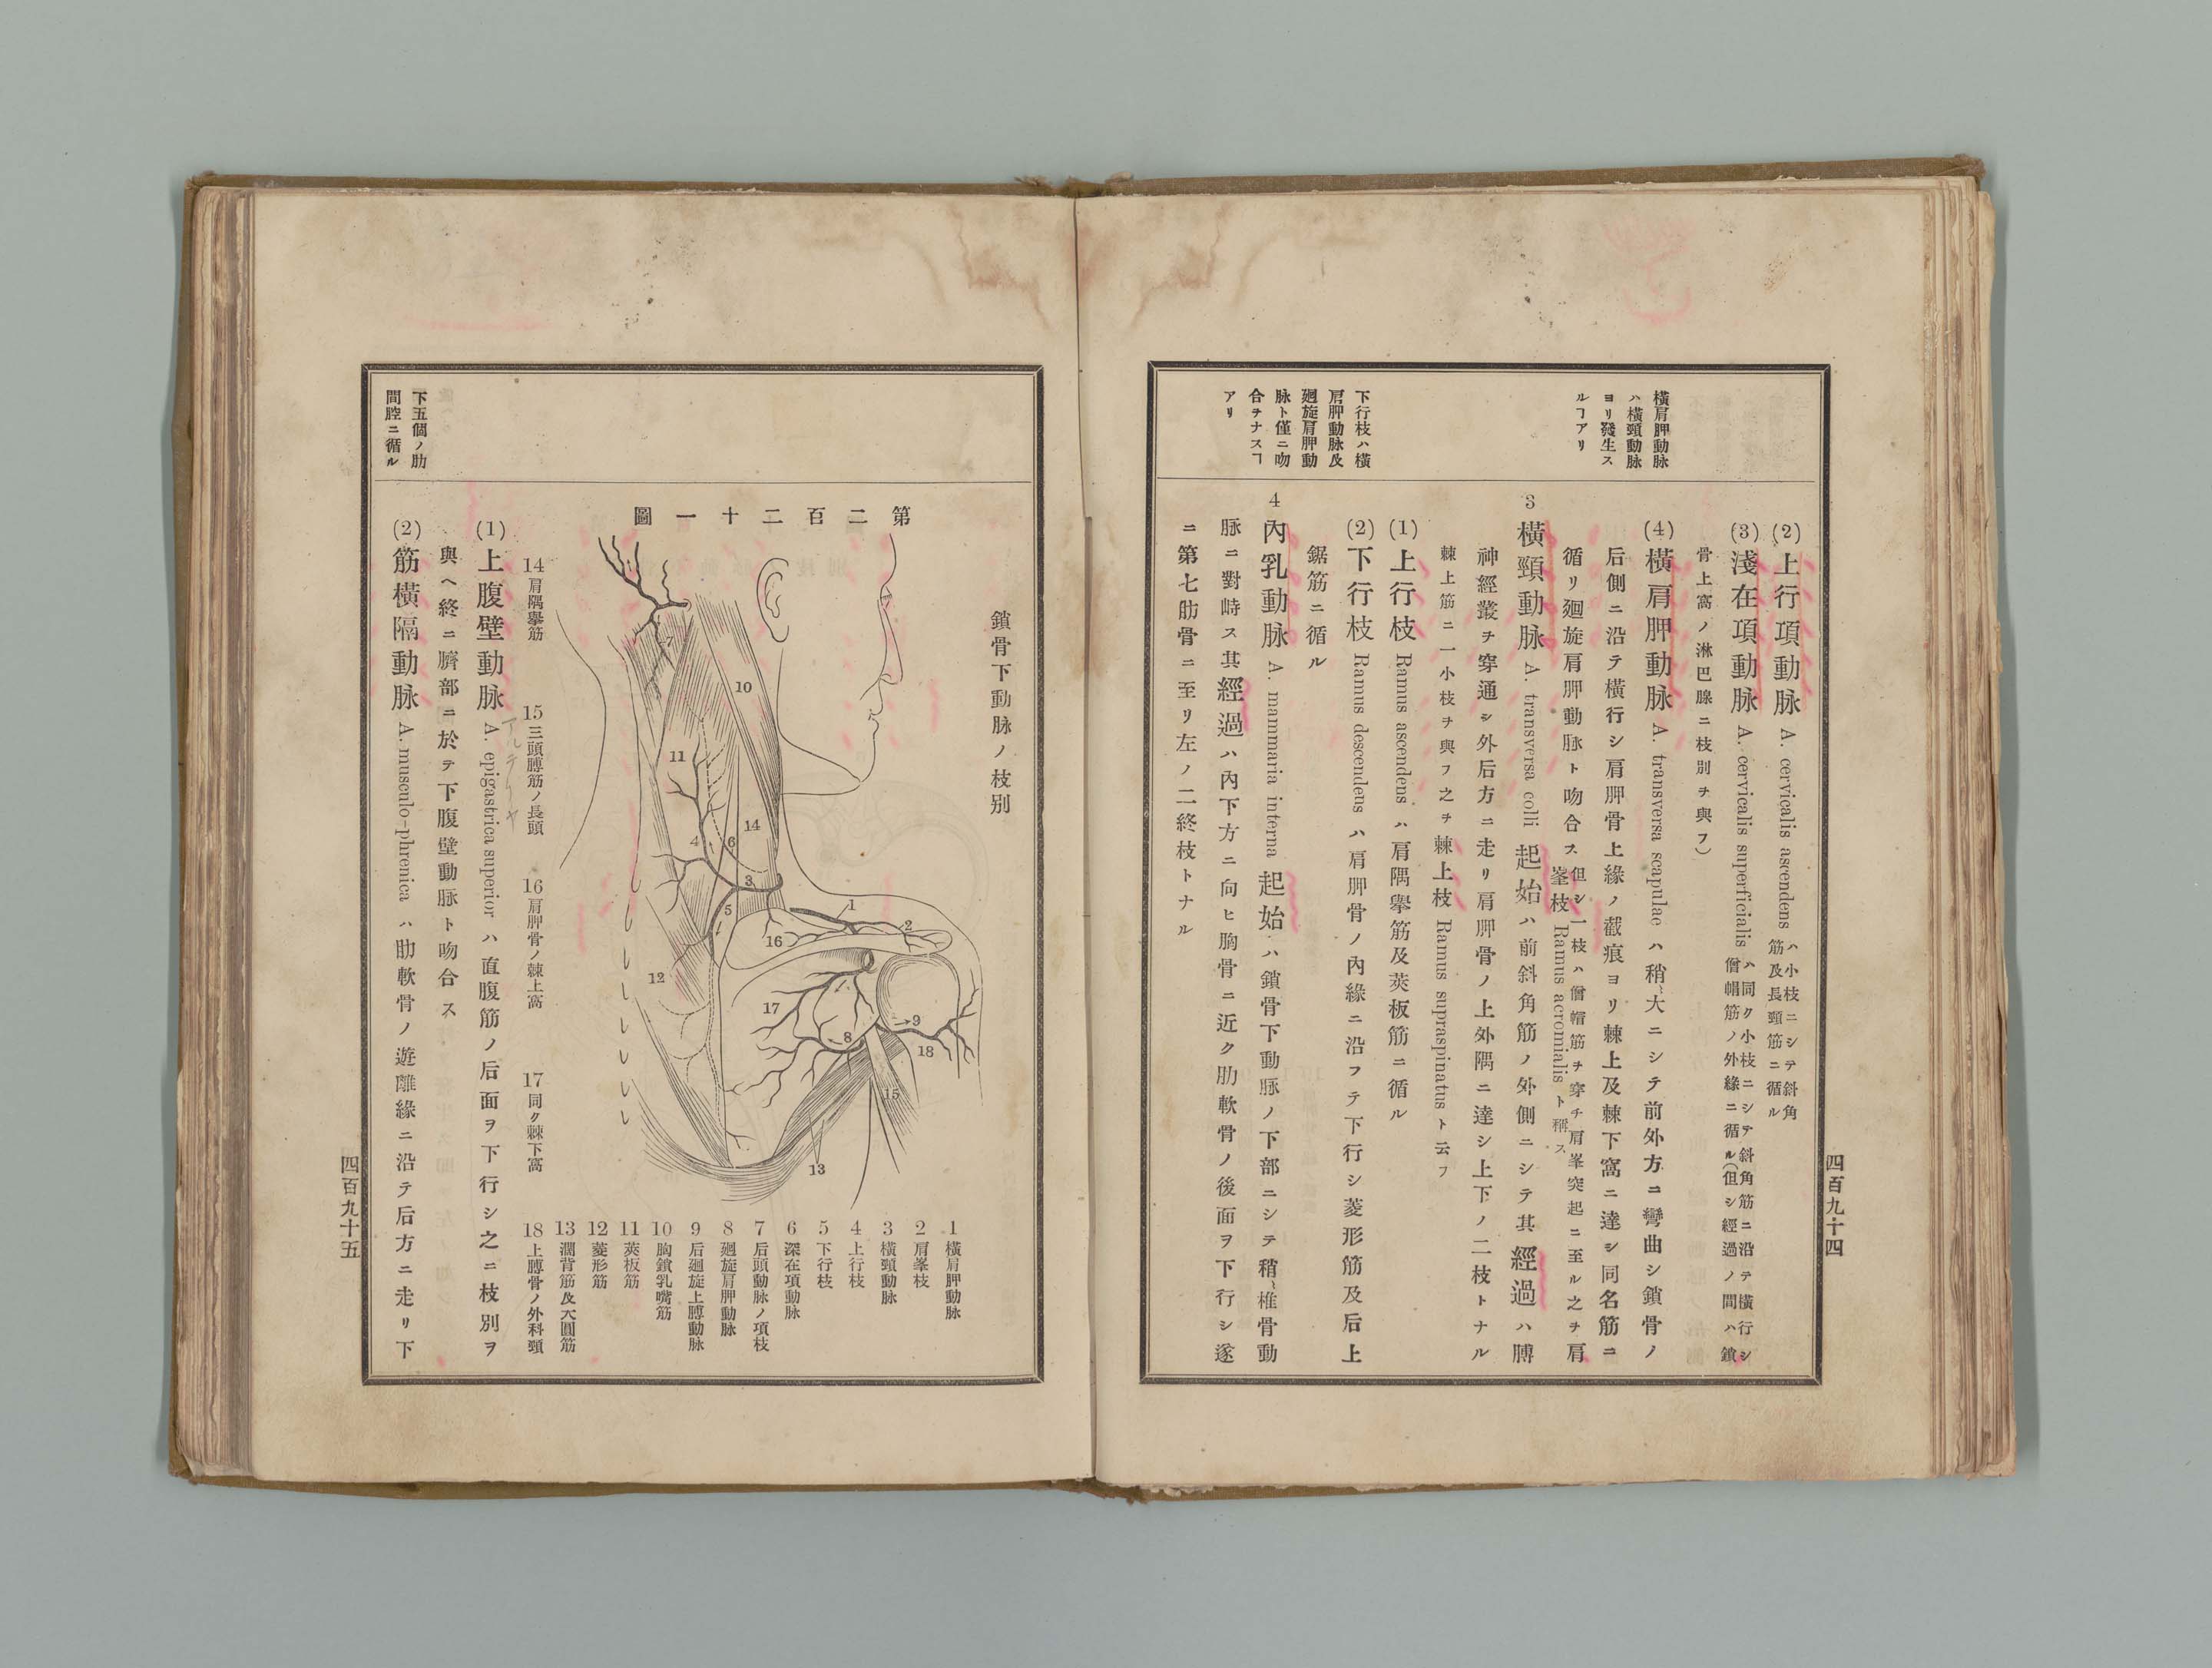 橫肩胛動脉
ハ橫頸動脉
ヨリ發生ス
ルヿアリ
下行枝ハ橫
肩胛動脉及
廻旋肩胛動
脉ト僅ニ吻
合ヲナスヿ
アリ
(2) 上行項動脉 A. cervicalis ascendens ハ小枝ニシテ斜角
筋及長頸筋ニ循ル
(3) 淺在項動脉 A. cervicalis superficialis ハ同ク小枝ニシテ斜角筋ニ沿テ橫行シ
僧帽筋ノ外緣ニ循ル(但シ經過ノ間ハ鎖
骨上窩ノ淋巴腺ニ枝別ヲ與フ)
(4) 橫肩胛動脉 A. transversa scapulae ハ稍大ニシテ前外方ニ彎曲シ鎖骨ノ
后側ニ沿テ橫行シ肩胛骨上緣ノ截痕ヨリ棘上及棘下窩ニ達シ同名筋ニ
循リ廻旋肩胛動脉ト吻合ス但シ一枝ハ僧帽筋ヲ穿チ肩峯突起ニ至ル之ヲ肩
峯枝 Ramus acromialis ト稱ス
3 橫頸動脉 A. transversa colli 起始ハ前斜角筋ノ外側ニシテ其經過ハ膊
神經叢ヲ穿通シ外后方ニ走リ肩胛骨ノ上外隅ニ達シ上下ノ二枝トナル
棘上筋ニ一小枝ヲ與フ之ヲ棘上枝 Ramus supraspinatus ト云フ
(1) 上行枝 Ramus ascendens ハ肩隅擧筋及莢板筋ニ循ル
(2) 下行枝 Ramus descendens ハ肩胛骨ノ內緣ニ沿フテ下行シ菱形筋及后上
鋸筋ニ循ル
4 內乳動脉 A. mammaria interna 起始ハ鎖骨下動脉ノ下部ニシテ稍椎骨動
脉ニ對峙ス其經過ハ內下方ニ向ヒ胸骨ニ近ク肋軟骨ノ後面ヲ下行シ遂
ニ第七肋骨ニ至リ左ノ二終枝トナル
四百九十四
下五個ノ肋
間腔ニ循ル
第二百二十一圖
鎖骨下動脉ノ枝別
10
11
7
14
4
6
3
5
1
2
16
12
17
9
8
18
15
13
1 橫肩胛動脉
2 肩峯枝
3 橫頸動脉
4 上行枝
5 下行枝
6 深在項動脉
7 后頭動脉ノ項枝
8 廻旋肩胛動脉
9 后廻旋上膊動脉
10 胸鎖乳嘴筋
11 莢板筋
12 菱形筋
13 濶背筋及大圓筋
14 肩隅擧筋
15 三頭膊筋ノ長頭
16 肩胛骨ノ棘上窩
17 同ク棘下窩
18 上膊骨ノ外科頸
(1) 上腹壁動脉 A. epigastrica superior ハ直腹筋ノ后面ヲ下行シ之ニ枝別ヲ
與ヘ終ニ臍部ニ於テ下腹壁動脉ト吻合ス
(2) 筋橫隔動脉 A. musculo-phrenica ハ肋軟骨ノ遊離緣ニ沿テ后方ニ走リ下
四百九十五